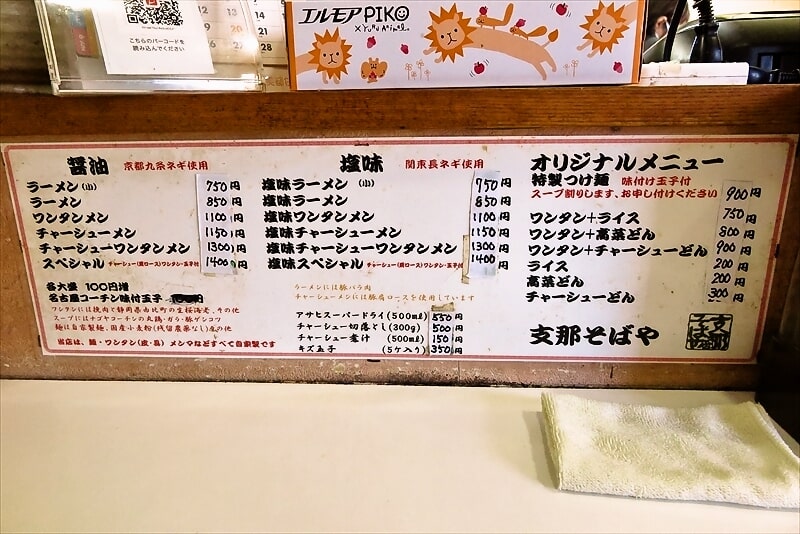 こちらのバーコードを
読み込んでください
エルモア PIKO
× Yuru Animal
醤油 京都九条ネギ使用
ラーメン(小) 750円
ラーメン 850円
ワンタンメン 1100円
チャーシューメン 1150円
チャーシューワンタンメン 1300円
スペシャル チャーシュー(肩ロース)ワンタン・玉子付 1400円
各大盛 100円増
名古屋コーチン味付玉子
ワンタンには挽肉と静岡県由比町の生桜海老、その他
スープにはナゴヤコーチンの丸鶏・ガラ・豚ゲンコツ
麺は自家製麺、国産小麦粉(残留農薬なし)その他
当店は、麺・ワンタン(皮・具)メンマなどすべて自家製です
塩味 関東長ネギ使用
塩味ラーメン (小) 750円
塩味ラーメン 850円
塩味ワンタンメン 1100円
塩味チャーシューメン 1150円
塩味チャーシューワンタンメン 1300円
塩味スペシャル チャーシュー(肩ロース)ワンタン・玉子付 1400円
ラーメンには豚バラ肉
チャーシューメンには豚肩ロースを使用しています
アサヒスーパードライ(500ml) 550円
チャーシュー切落とし(300g) 500円
チャーシュー煮汁 (500ml) 150円
キズ玉子 (5ケ入り) 350円
オリジナルメニュー
特製つけ麺 味付け玉子付 900円
スープ割りします、お申し付けください
ワンタン+ライス 750円
ワンタン+高菜どん 800円
ワンタン+チャーシューどん 900円
ライス 200円
高菜どん 200円
チャーシューどん 300円
支那そばや